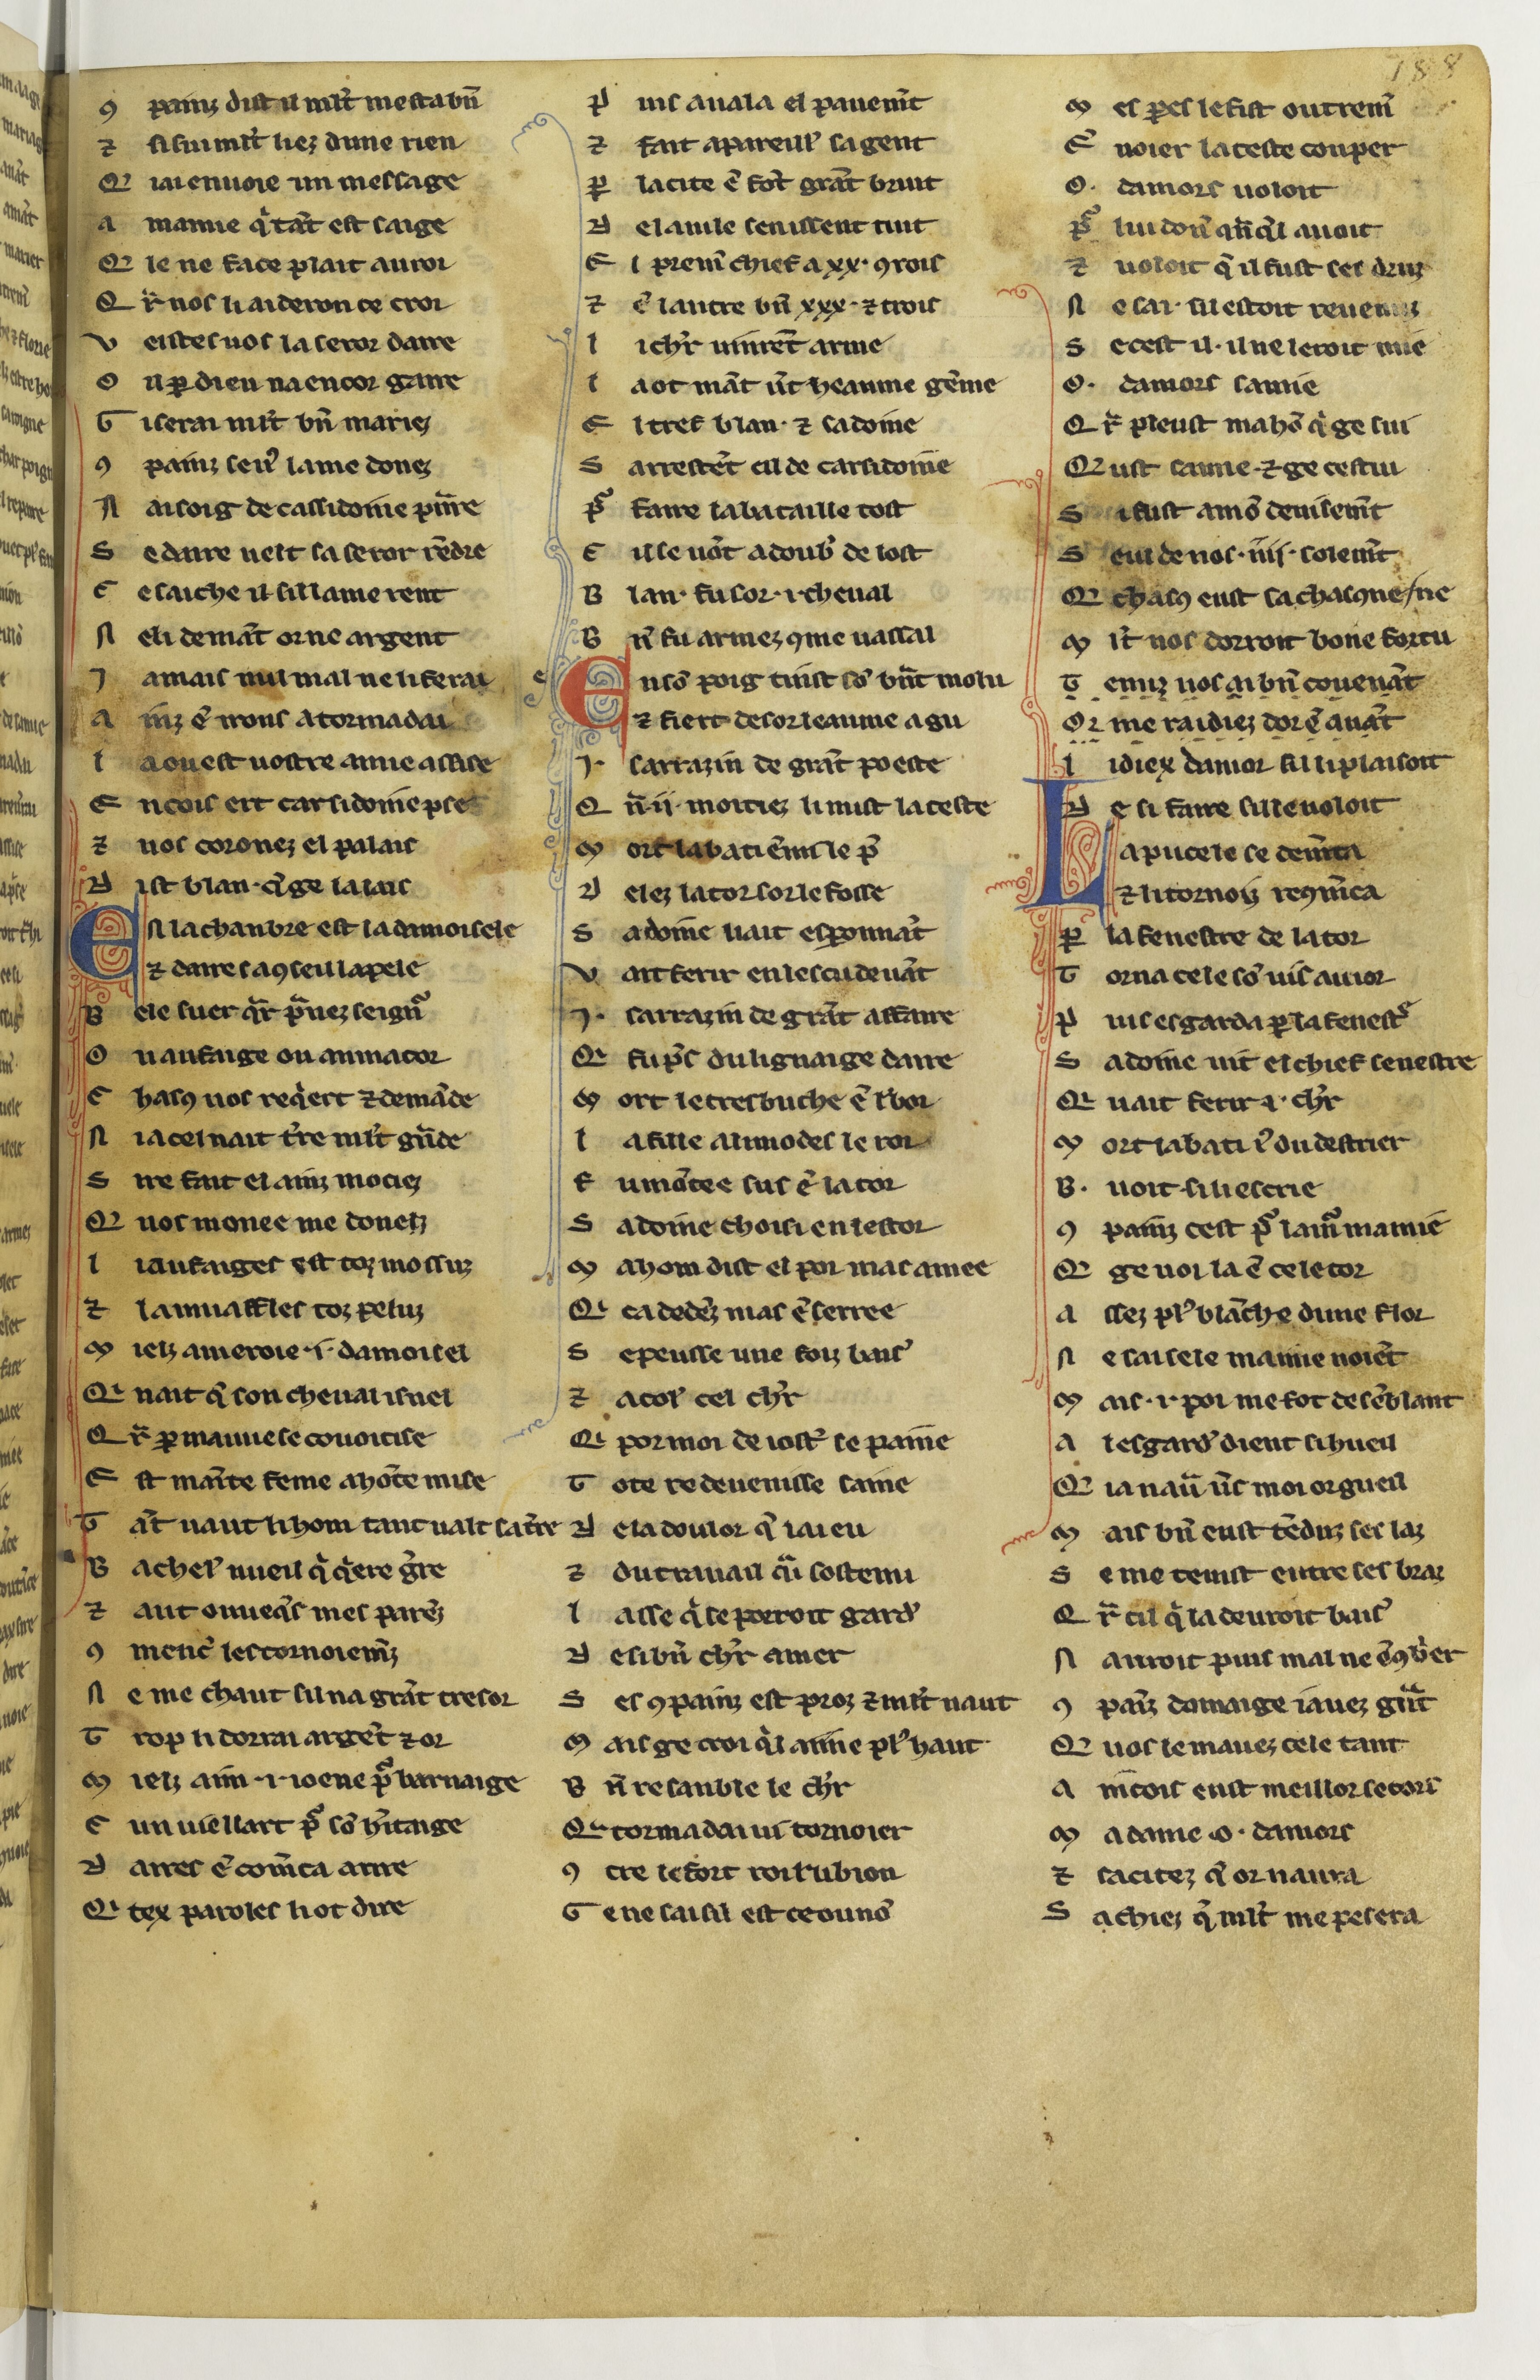 188
ꝯ painz dist il ml̃t mesta bñ
⁊ si sui ml̃t liez dune rien
Q iai enuoie un message
A mamie q̇ tãt est saige
Q le ne face plait auror
Q r̃ nos li aideron ce croi
V eistes uos la seror daire
O il ꝑ dieu na encor gaire
G i serai ml̃t bñ mariez
ꝯ painz seu᷑ lame donez
N ai soig de cassidoine p̃nre
S e daire uelt sa seror rẽdre
E e saiche il sil lame rent
N e li demãt or ne argent
J amais nul mal ne li ferai
A inz ẽ irons a tormadai
L a ou est uostre amie assise
E ncois ert carsidoine pse
⁊ uos coronez el palais
D ist blan · q̃ ge la lais
E N la chanbre est la damoisele
⁊ daires a ꝯseu lapele
B ele suer q̃r p̃nez seignᷣ
O u aufaige ou aumacor
C hasꝯ uos req̇ert ⁊ demãde
N ia cel nait t̃re ml̃t g̃nde
S ire fait el ainz mociez
Q uos monee me donelz
L i aufaiges est toz mossuz
⁊ lamuaffles toz peluz
M ielz ameroie · i · damoisel
Q i nait q̃ son cheual isnel
Q r̃ ꝑ mauuese couoitise
E st mãite feme a hõte mise
T ãt uaut li hom tant ualt sa t̃re
B acheẜ uueil q̇ q̇ere g̃re
⁊ aut ouueq̃s mes parẽz
ꝯ mencẜ les tornoiem̃z
N e me chaut sil na grãt tresor
T rop li dorrai argẽt ⁊ or
M ielz aim · i · ioene pᷣ barnaige
C un uiellart pᷣ sõ h̃itaige
D aires ẽ com̃ca a rire
Q i tex paroles li ot dire
P uis auala el pauem̃t
⁊ fait apareillẜ sa gent
ꝑ la cite ẽ fõt grãt bruit
D e la uile sen issent tuit
E l prem̃ chief a xx · ꝯrois
⁊ ẽ lautre bñ xxx · ⁊ trois
L i ch̃r uinrẽt arme
L a ot mãt ũt heaume gẽme
E l tref blan · ⁊ sadoine
S arrestẽt cil de carsidoine
pᷣ faire la bataille tost
C il se uõt adoub̃ de lost
B lan · fu sor · i · cheual
B ñ fu armez ꝯme uassal
E n sõ poig tint sõ bñt molu
⁊ fiert desor leaume agu
· I · sarrazin de grãt poeste
Q ñ · ii · moitiez li mist la teste
M ort labati ẽmi le p̃
D elez la tor sor le fosse
S adoine uait esꝑonnãt
V ait ferir en lescu deuãt
· I · sarrazin de grãt affaire
Q i fu p̃s du lignaige daire
M ort le tresbuche ẽ lẽ boi
L a fille alimodes le roi
F u mõtee sus ẽ la tor
S adoine choisi en lestor
M ahom dist el por mas amee
Q i ca dedẽz mas ẽserree
S e peusse une foiz baiẜ
⁊ acoẜ cel ch̃r
Q i por moi de iosẜ se paine
T ote redeuenisse saine
D e la doulor q̃ iai eu
⁊ du trauail q̃i sostenu
L asse q̇ se porroit gardẜ
D e si bñ ch̃r amer
S es ꝯpainz est proz ⁊ ml̃t uaut
M ais ge croi q̃l aime plᷣ haut
B ñ resanble le ch̃r
Q u tormadai ui tornoier
ꝯ tre le fort roi rubion
G e ne sai sil est ce ou nõ
M es ꝑes le fist outrem̃
E ñuoier la teste couper
O · damors uoloit
pᷣ lui dorẽ q̃nq̃l auoit
⁊ uoloit q̃ il fust ses druz
N e sai · sil estoit reuenuz
S e cest il · il ne leroit mie
O · damors samie
Q r̃ pleust mahõ q̃ ge sui
Q ust samie · ⁊ ge cestui
S i fust amõ deuisem̃t
S eul de nos · iiij · solem̃t
Q chasꝯ eust sa chasꝯne ne
M l̃t nos dorroit bone fortu
T enuz uos ai bñ couenãt
Or me raidiez dor ẽ auãt
L i diex damor sil li plaisoit
D e si faire sil le uoloit
L a pucele se dem̃ta
⁊ li tornoiz reꝯm̃ca
ꝑ la fenestre de la tor
T orna cele sõ uis auior
P uis esgarda ꝑ la fenestᷣ
S adoine uit el chief senestre
Q i uait ferir · i · ch̃r
M ort labati iᷣ du destrier
B · uoit si li escrie
ꝯ painz cest pᷣ lamᷣ mamie
Q ge uoi la ẽ cele tor
A ssez plᷣ blãche dune flor
N e sai se le mamie noiẽt
M ais · i · poi me fot de sẽblant
A lesgardẜ dient si hueil
Q ia nau̾ ũs moi orgueil
M ais bñ eust tẽduz ses laz
S e me tenist entre ses braz
Q r̃ cil q̇ la deuroit baiẜ
N auroit puis mal ne ẽꝯb̾er
ꝯ pañz domaige i auez g̃nt
Q uos lemauez cele tant
A incois eust meillor secors
M a dame · o · damors
⁊ sa citez q̃ or naura
S achiez q̃ ml̃t me pesera